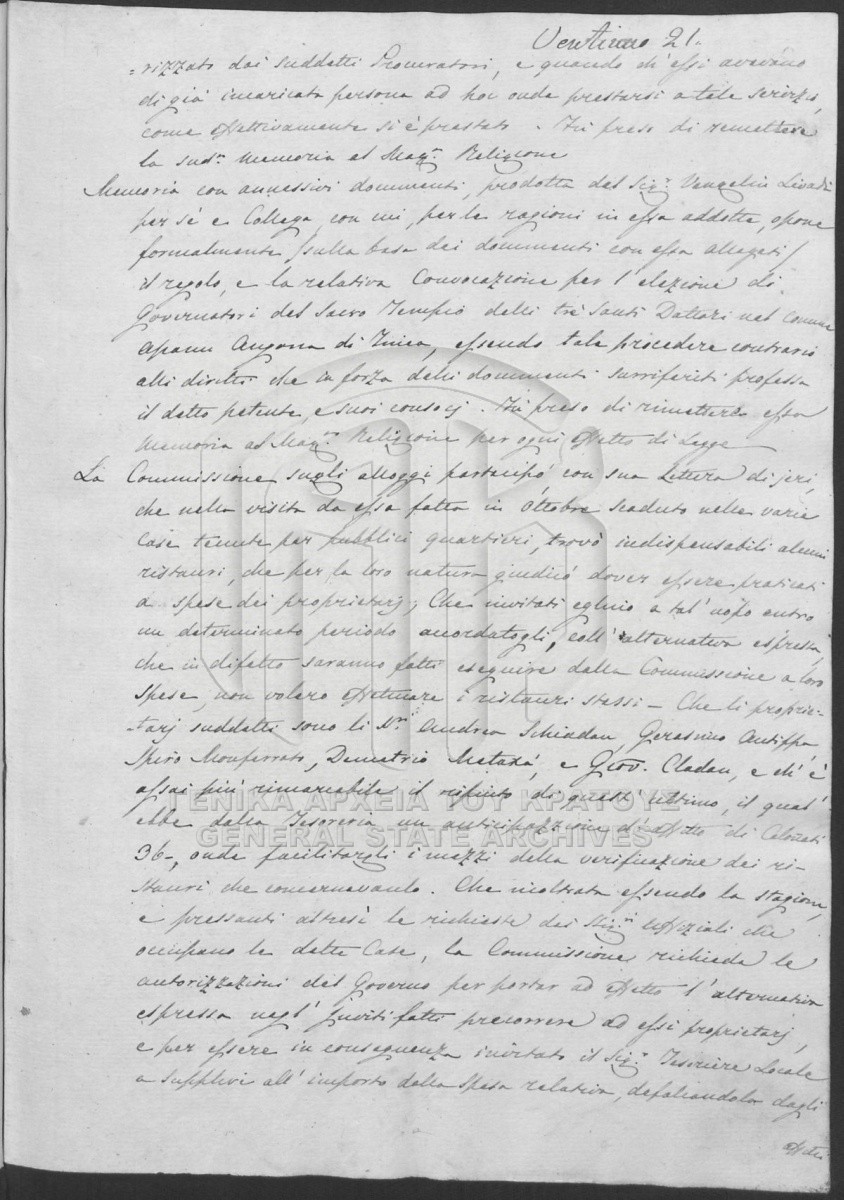 Ventiuno 21.
=rizzato dai suddetti Procuratori, e quando ch' essi avevano
di già incaricata persona ad hoc onde prestarsi a tale servizio,
come effettivamente si è prestato. Fù preso di remettere
la sud.ª memoria al Mag.to Religione
Memoria con annessivi documenti, prodotta dal Sig.r Vangelin Livadà
per sè e Collega, con cui, per le ragioni in essa addotte, opone
formalmente /sulla base dei documenti con essa allegati/
il regolo, e la relativa Convocazione per l' elezione di
Governatori del Sacro Tempio delli trè Santi Dottori nel comune
Apanu, essendo tale procedere contrario
alli diritti che in forza delli documenti surriferiti professa
il detto petente, e suoi consocj. Fù preso di rimettere essa
Memoria al Mag.to Religione per ogni effetto di Legge
La Commissione sugli alloggi partecipò, con sua Lettera di jeri,
che nella visita da essa fatta in Ottobre scaduto nelle varie
Case tenute per pubblici quartieri, trovò indispensabili alcuni
ristauri, che per la loro natura giudicò dover essere praticati
a spese dei proprietarj; Che invitati eglino a tal' uopo entro
un determinato periodo accordatogli, coll' alternativa espressa,
che in difetto saranno fatti eseguire dalla Commissione a loro
spese, non volero effettuare i ristauri stessi - Che li proprie-
-tarj suddetti sono li N.ri Andrea Schiadan, Gerasimo Antippa
Spiro Monferrato, Demetrio Metaxà, e Giov. Cladan, e ch' è
assai più rimarcabile il rifiuto di quest' ultimo, il qual'
ebbe dalla Tesoreria un anticipazione d' affitto di Colonati
36-, onde facilitargli i mezzi della verificazione dei ri-
stauri che concernevanlo. Che inoltrata essendo la stagione,
e pressanti altresì le richieste dei Sig.ri Uffiziali che
occupano le dette Case, la Commissione richiede le
autorizzazioni del Governo per portar ad effetto l' alternativa
espressa negl' Inviti fatti precorrere ad essi proprietarj,
e per essere in conseguenza invitato il Sig.r Tesoriere Locale
a supplire all' importo della spesa relativa, defalcandola dagli
affitti
ΓΕΝΙΚΑ ΑΡΧΕΙΑ ΤΟΥ ΚΡΑΤΟΥΣ
GENERAL STATE ARCHIVES